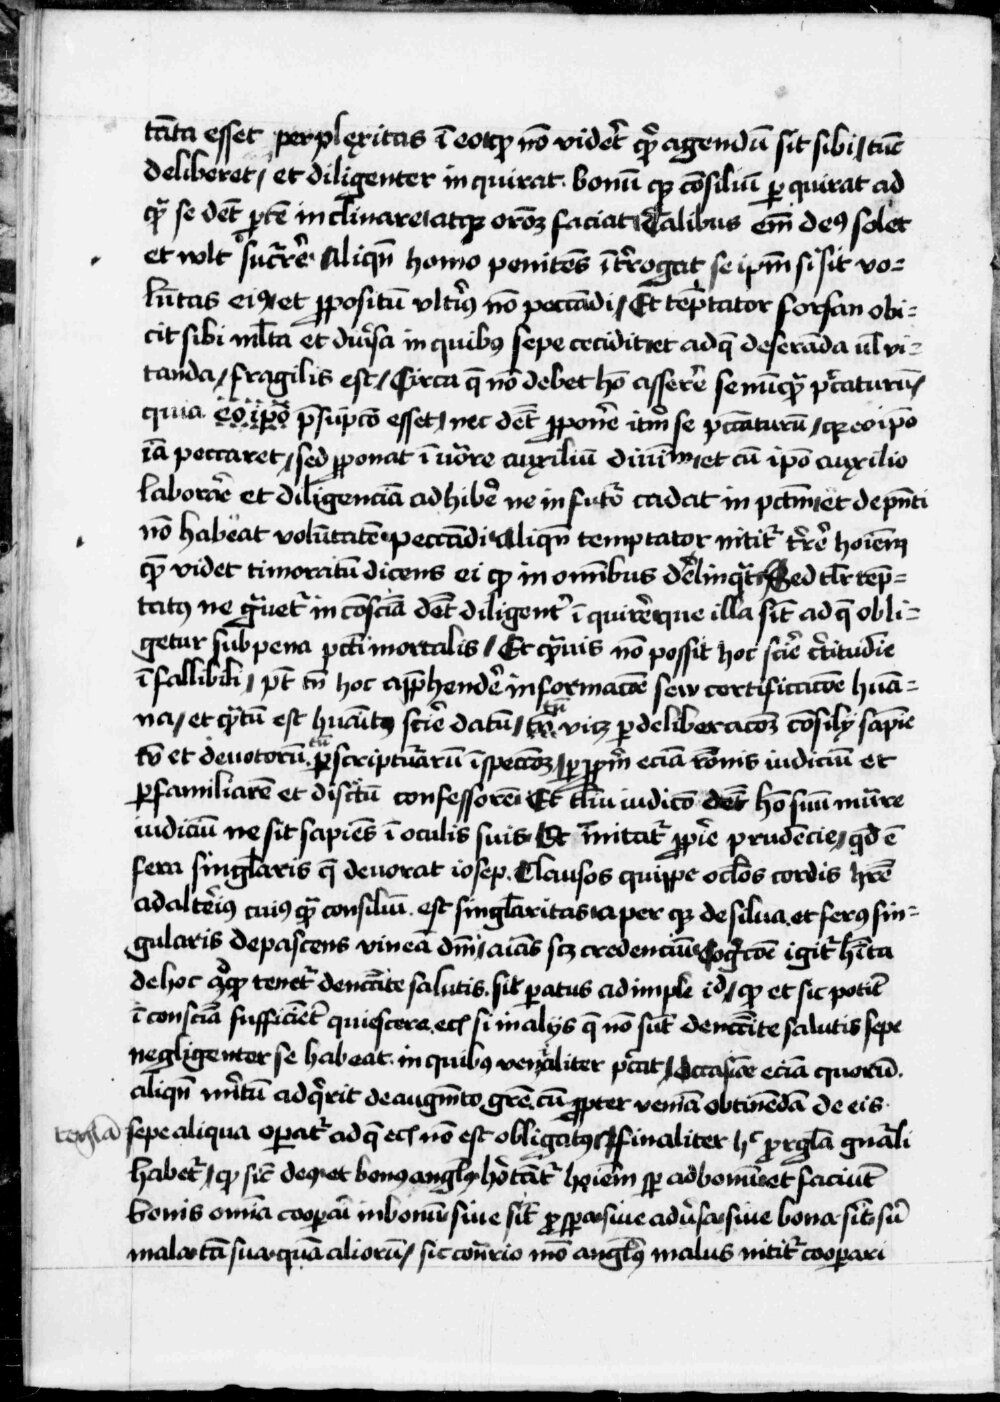 tāta esset perplexitas ī eo qp nō videt' qp agendū sit sibi / tūc
deliberet / et diligenter inquirat . bonū qz cōsiliū perquirat ad
qd se det ptē inclinare / atqz orōz faciat / Talibus em̄ deus solet
et wlt sucrre' . Aliqn̄ homo penitēs īt'rogat se ipm̄ si sit vo-
lūtas eius / et ppositū vlt'ius nō peccādi / Et temptator forsan obi-
cit sibi ml'ta et diu'sa in quibus sepe cecidit / et ad q̄ deserāda ul' vi-
tanda / fragilis est / Circa q̄ nō debet hō assere' se nūcq̄ p'catuř /
quia eo ipō p̄supcō esset / nec det pponē' it'm se pccaturū / qz eo ipō
iā peccaret / sed pponat ī u'ore auxiliū diuīm / et cū ipō auxilio
laborare' et diligenciā adhibe' ne in fut'o cadat in pctm̄ / et de pn̄ti
nō habeat volūtatē peccādi . Aliqn̄ temptator nitit' t're' hoiem̄
qm̄ videt timoratū dicens ei qp in omībus delinqt / Sed tl'r tēp-
tatus ne gūet' in cōsciā det diligent' ī quirē' que illa sīt ad q̄ obli-
getur sub pena pcti mortalis / Et q̄uis nō possit hoc scire' c'titudīe
īfallibili / pt tn̄ hoc app'hende' informacōe sew certificacōe huā-
na / et q̄tū est huaītus scire' datū / tū viz p deliberacōz cōsily sapīe
tū et deuotorū tū p scripturarū īspeccōz / p ppm̄ eciā rōnis iudiciū et
p familiarē et discretū confessorē . Et tl'iū iudicō det hō suū mu'are
iudiciū ne sit sapiēs ī oculis suis . Et īnitat' pp'e prudēcie / qd ē
fera singl'aris q̄ deuorat iosep . Clausos quippe ocl'os cordis hr̄e
ad alt'ius cuiusq̄ consiliū . est singl'aritas / aper qz de silua . et ferus sin-
gularis depascens vineā dn̄i / aīas scz credenciū / Cogcōe igit' hīta
de hoc qd qp tenet' de nccīte salutis . sit paratus adimple' id / qp et sic potit
ī consciā sufficiēt' quiescere . ecī si in alijs q̄ nō sūt de nccīte salutis sepe
negligenter se habeat . in quibus venialiter p'cat / Occasiōe eciā quorū .
aliqn̄ m'itū adq'rit de augm̄to gr̄e . cū ppter veniā obtinēdā de eis
sepe aliqua opat' ad q̄ ecī nō est obligatus / Et finaliter hc p regl'a gn̄ali
habet' / qp sic' deus et bonus angl'us hōtāt' hoiem̄ sp ad bonū et faciūt
bonis omīa cooperāi in bonū siue sīt pspa siue adu'sa siue bona sīt siue
mala tā sua quā aliorū / sic cont'rio mō angl'us malus nitit' coopari